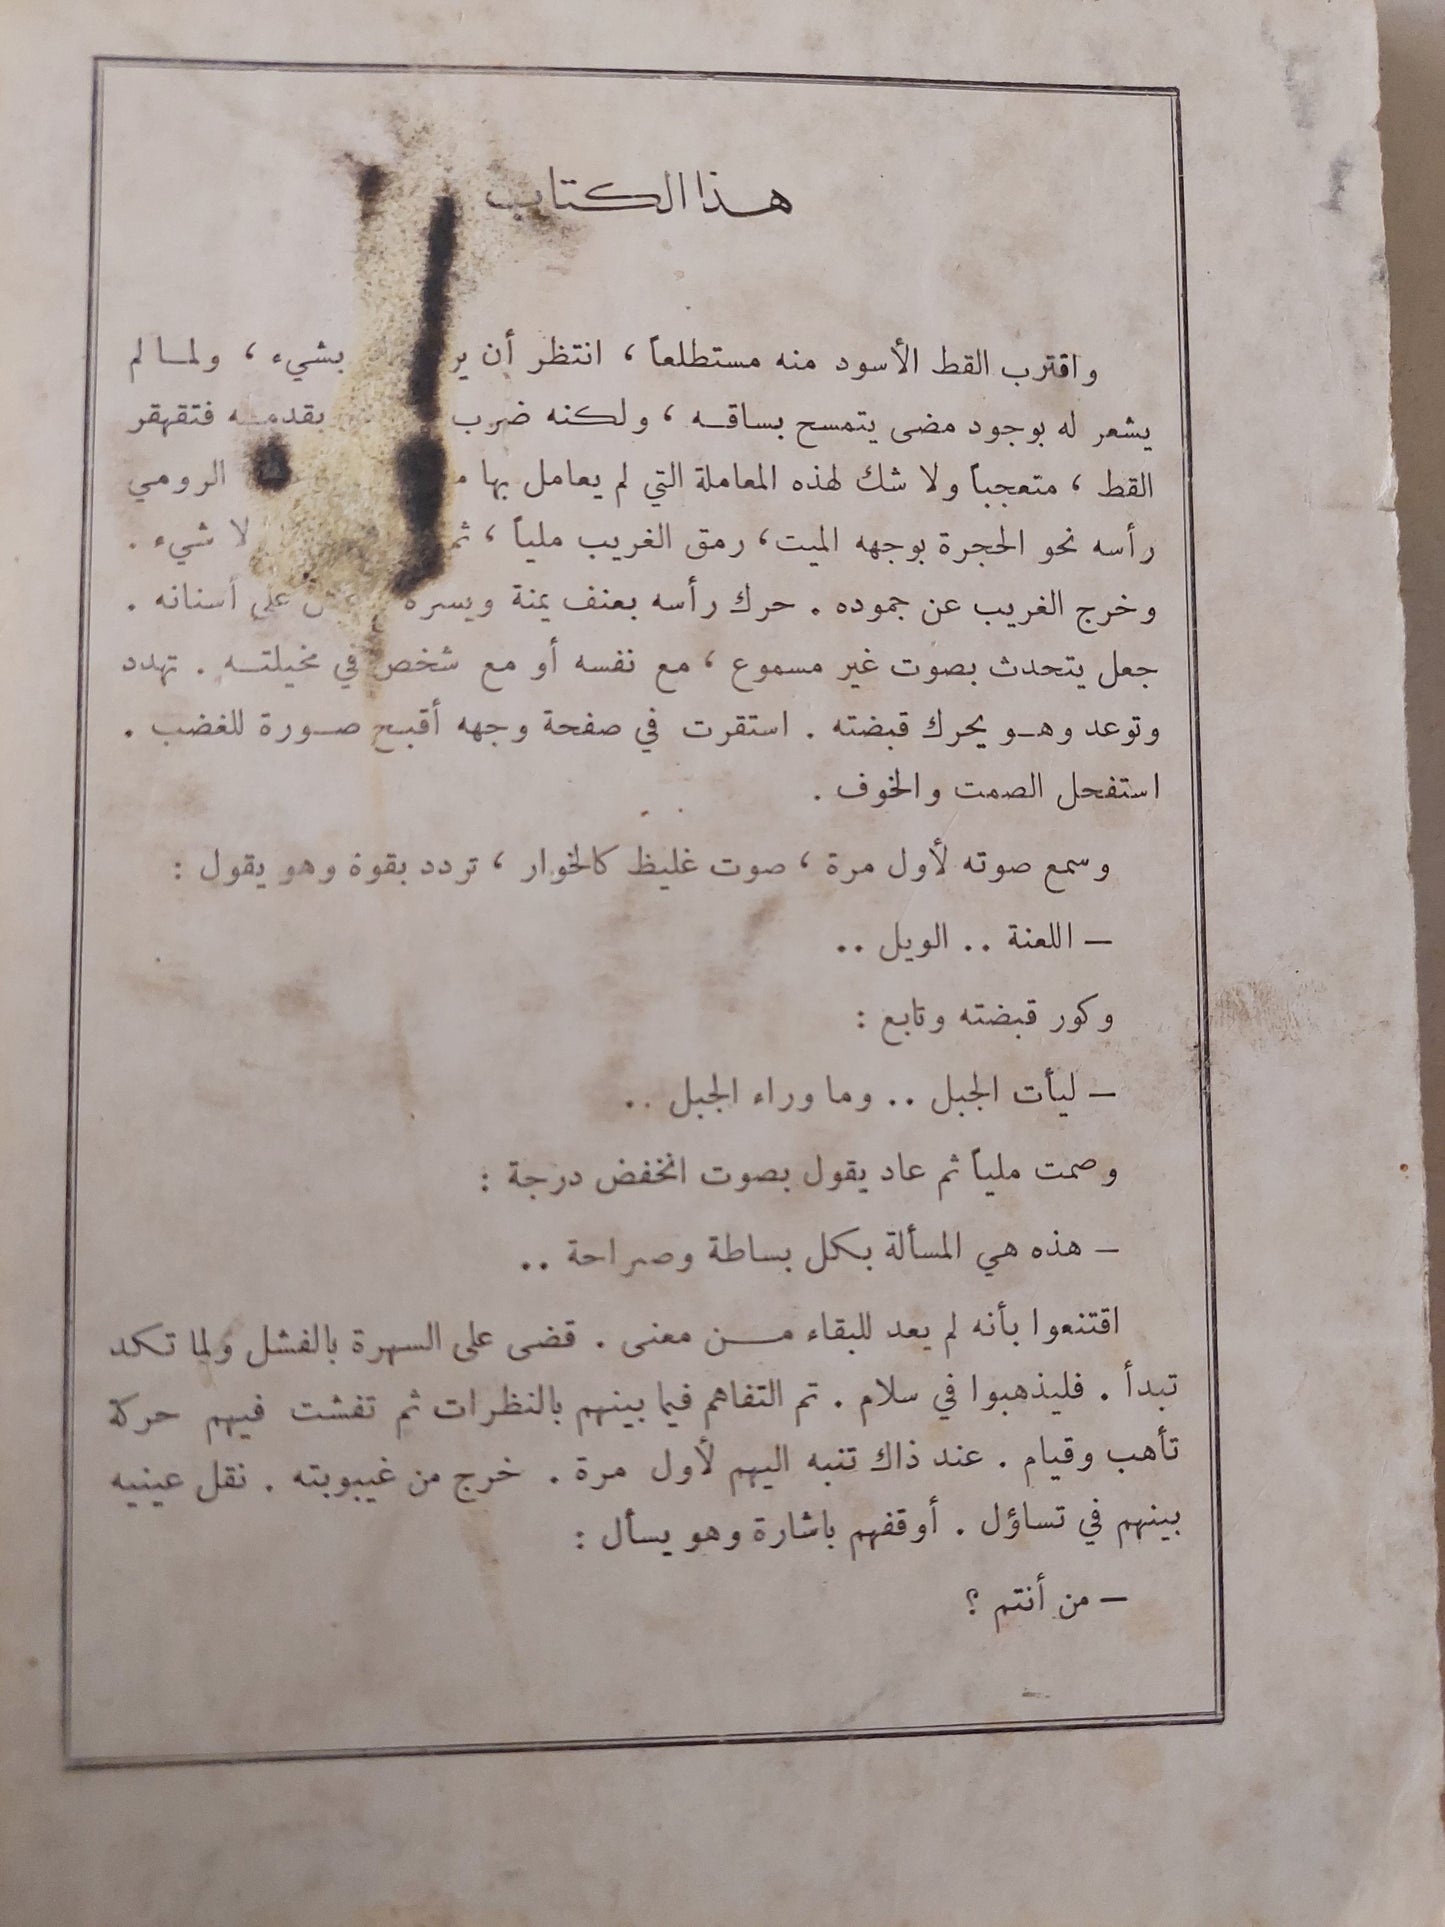 هذا الكتاب
واقترب القط الأسود منه مستطلعاً ، انتظر أن بشيء ، ولما لم
يشعر له بوجود مضى يتمسح بساقه ، ولكنه ضرب بقدمه فتقهقر
القط ، متعجباً ولا شك لهذه المعاملة التي لم يعامل بها الرومي
رأسه نحو الحجرة بوجهه الميت ، رمق الغريب ملياً ، ثم لا شيء .
وخرج الغريب عن جموده . حرك رأسه بعنف يمنة ويسرة على أسنانه .
جعل يتحدث بصوت غير مسموع ، مع نفسه أو مع شخص في مخيلته . تهدد
وتوعد وهو يحرك قبضته . استقرت في صفحة وجهه أقبح صورة للغضب .
استفحل الصمت والخوف .
وسمع صوته لأول مرة ، صوت غليظ كالخوار ، تردد بقوة وهو يقول :
– اللعنة .. الويل ..
وكور قبضته وتابع :
– ليأت الجبل .. وما وراء الجبل ..
وصمت ملياً ثم عاد يقول بصوت انخفض درجة :
– هذه هي المسألة بكل بساطة وصراحة ..
اقتنعوا بأنه لم يعد للبقاء من معنى . قضى على السهرة بالفشل ولما تكد
تبدأ . فليذهبوا في سلام . تم التفاهم فيما بينهم بالنظرات ثم تفشت فيهم حركة
تأهب وقيام . عند ذاك تنبه اليهم لأول مرة . خرج من غيبوبته . نقل عينيه
بينهم في تساؤل . أوقفهم باشارة وهو يسأل :
– من أنتم ؟